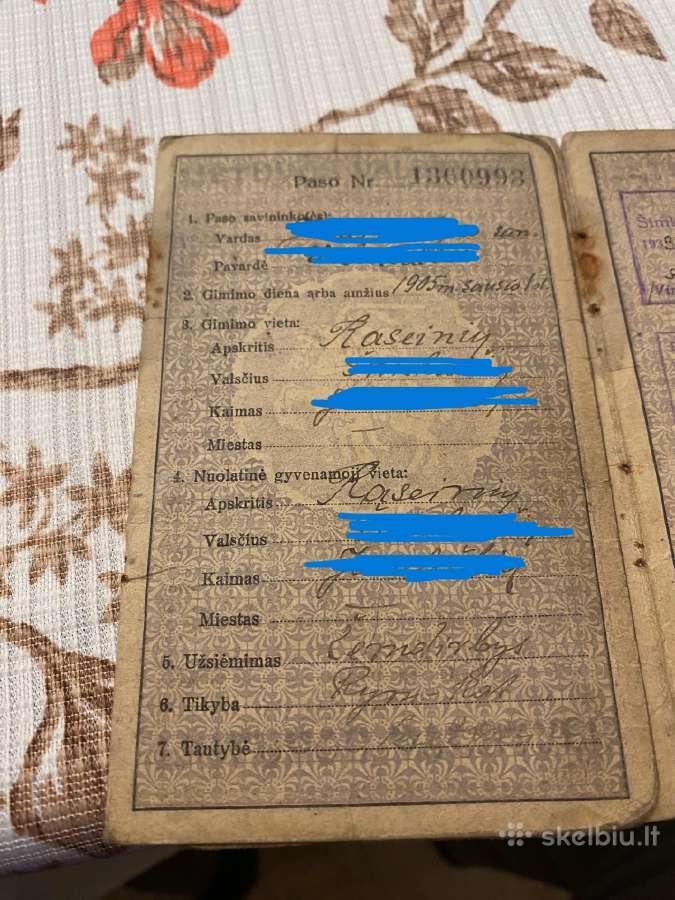 Paso Nr. 1360993
1. Paso savininko(ės):
Vardas
Pavardė
2. Gimimo diena arba amžius 1905 m. sausio 1 d.
3. Gimimo vieta:
Apskritis Raseinių
Valsčius
Kaimas
Miestas —
4. Nuolatinė gyvenamoji vieta:
Apskritis Raseinių
Valsčius
Kaimas
Miestas —
5. Užsiėmimas Žemdirbys
6. Tikyba Rym-Kat
7. Tautybė
193
skelbiu.lt